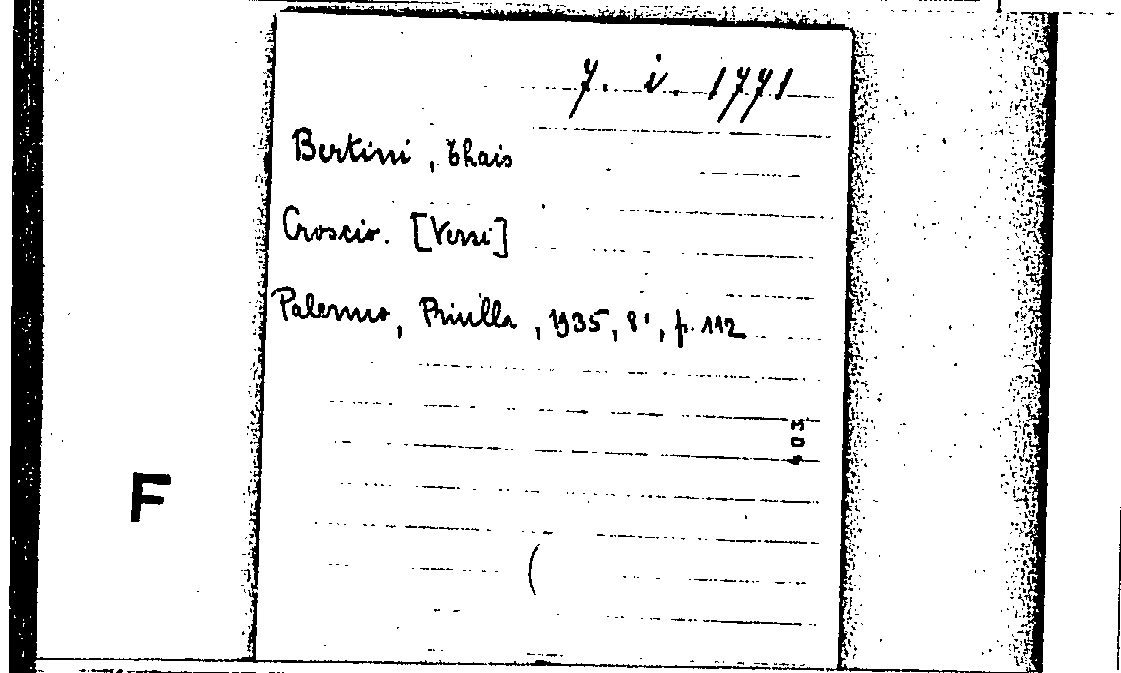 7. i. 1771
Bertini, Thais
Croscio. [Versi]
Palermo, Priulla, 1935, 8°, p. 112
F